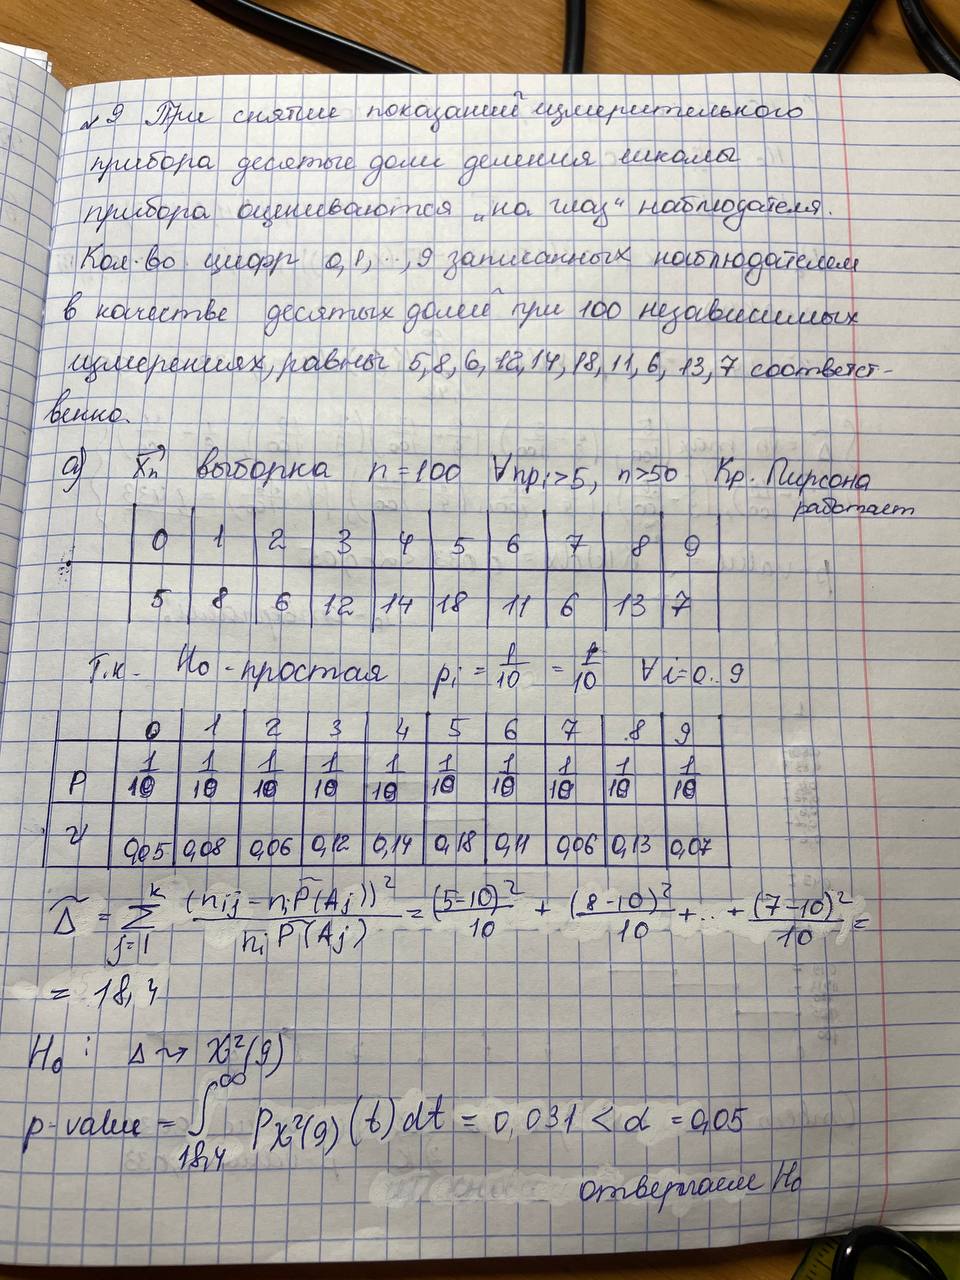 №9 При снятии показаний измерительного
прибора десятые доли деления шкалы
прибора оцениваются „на глаз“ наблюдателя.
Кол-во цифр 0,1,…,9 записанных наблюдателем
в качестве десятых долей при 100 независимых
измерениях, равны 5,8,6,12,14,18,11,6,13,7 соответст-
венно.
а) X⃗n выборка n=100 ∀npi>5, n>50 Кр. Пирсона
работает
0 1 2 3 4 5 6 7 8 9
5 8 6 12 14 18 11 6 13 7
Т.к. H₀ - простая pi = 1/10 = 1/10 ∀i=0..9
0 1 2 3 4 5 6 7 8 9
P 1/10 1/10 1/10 1/10 1/10 1/10 1/10 1/10 1/10 1/10
ν 0,05 0,08 0,06 0,12 0,14 0,18 0,11 0,06 0,13 0,07
Δ̃ = ∑_{j=1}^{k} (n_ij − n_i P̃(A_j))² / n_i P̃(A_j) = (5-10)²/10 + (8-10)²/10 + … + (7-10)²/10 =
= 18,4
H₀ : Δ ⇝ χ²(9)
p-value = ∫_{18,4}^{∞} P_χ²(9) (t) dt = 0,031 < α = 0,05
отвергаем H₀